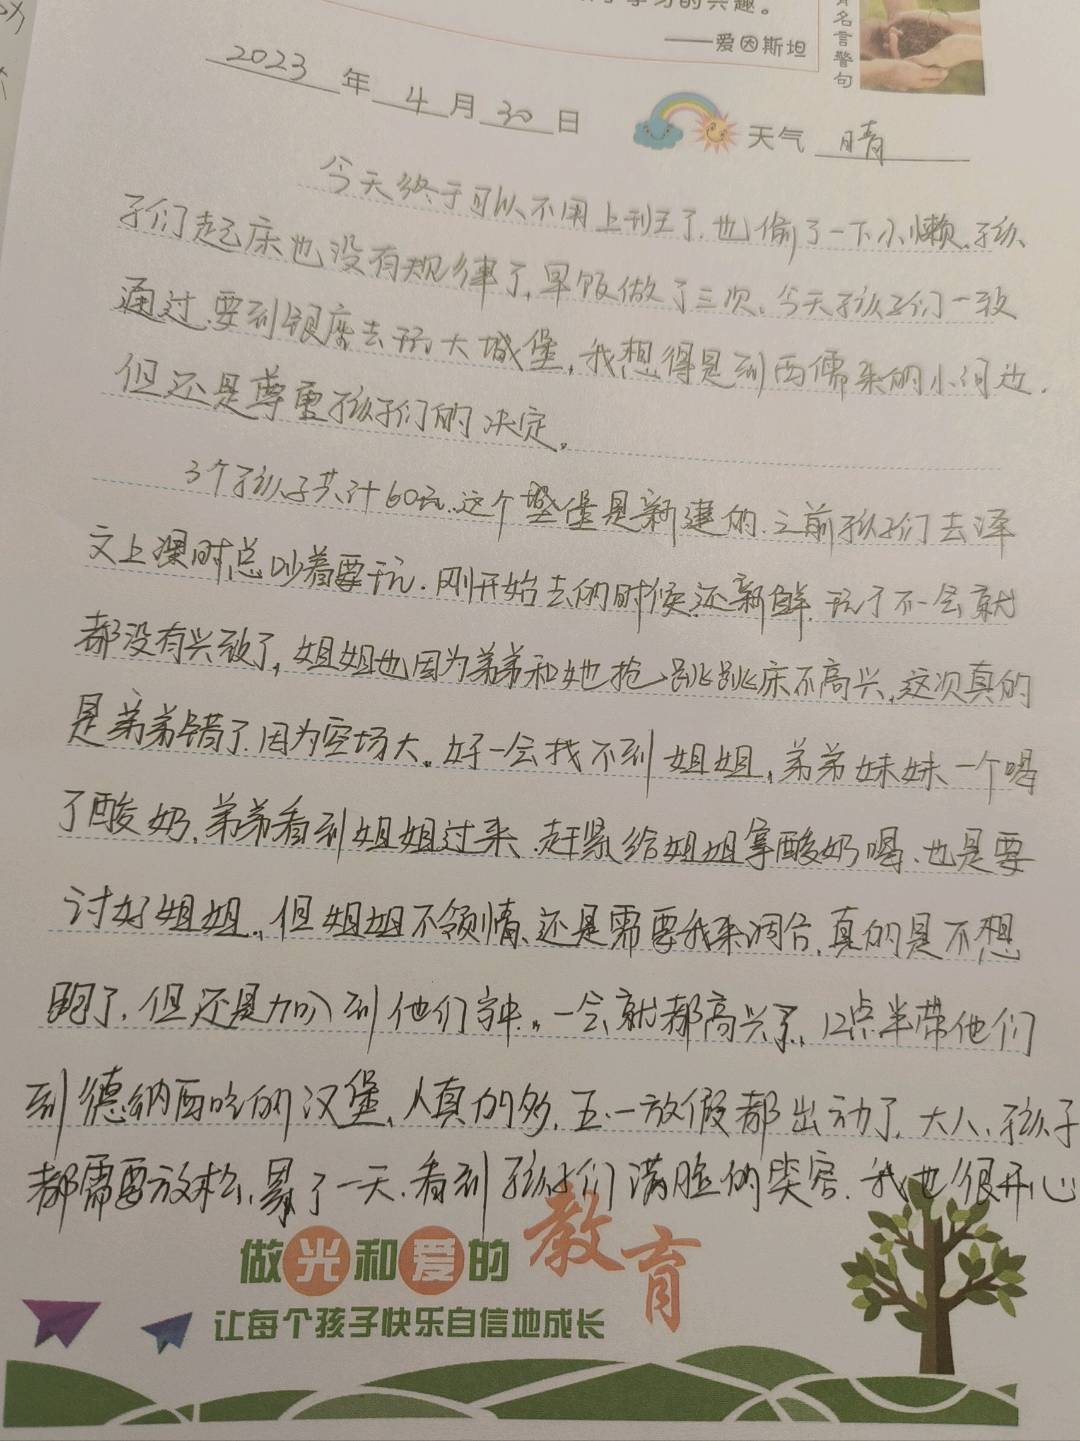 学习的兴趣。
——爱因斯坦
名言警句
2023年4月30日 天气 晴
今天终于可以不用上班了,也偷了一下小懒,孩
子们起床也没有规律了,早饭做了三次,今天孩子们一致
通过,要到银座去玩大城堡,我想得是到西儒来的小河边,
但还是尊重孩子们的决定。
3个孩子共计60元,这个城堡是新建的,之前孩子们去泽
文上课时总吵着要玩,刚开始去的时候还新鲜,玩了不一会就
都没有兴致了,姐姐也因为弟弟和她抢跳跳床不高兴,这次真的
是弟弟错了,因为空场大,好一会找不到姐姐,弟弟妹妹一个喝
了酸奶,弟弟看到姐姐过来,赶紧给姐姐拿酸奶喝,也是要
讨好姐姐,但姐姐不领情,还是需要我来调合,真的是不想
跑了,但还是加入到他们字中,一会就都高兴了,12点半带他们
到德纳西吃的汉堡,人真的多,五一放假都出动了,大人、孩子
都需要放松,累了一天,看到孩子们满脸的笑容,我也很开心
做光和爱的教育
让每个孩子快乐自信地成长